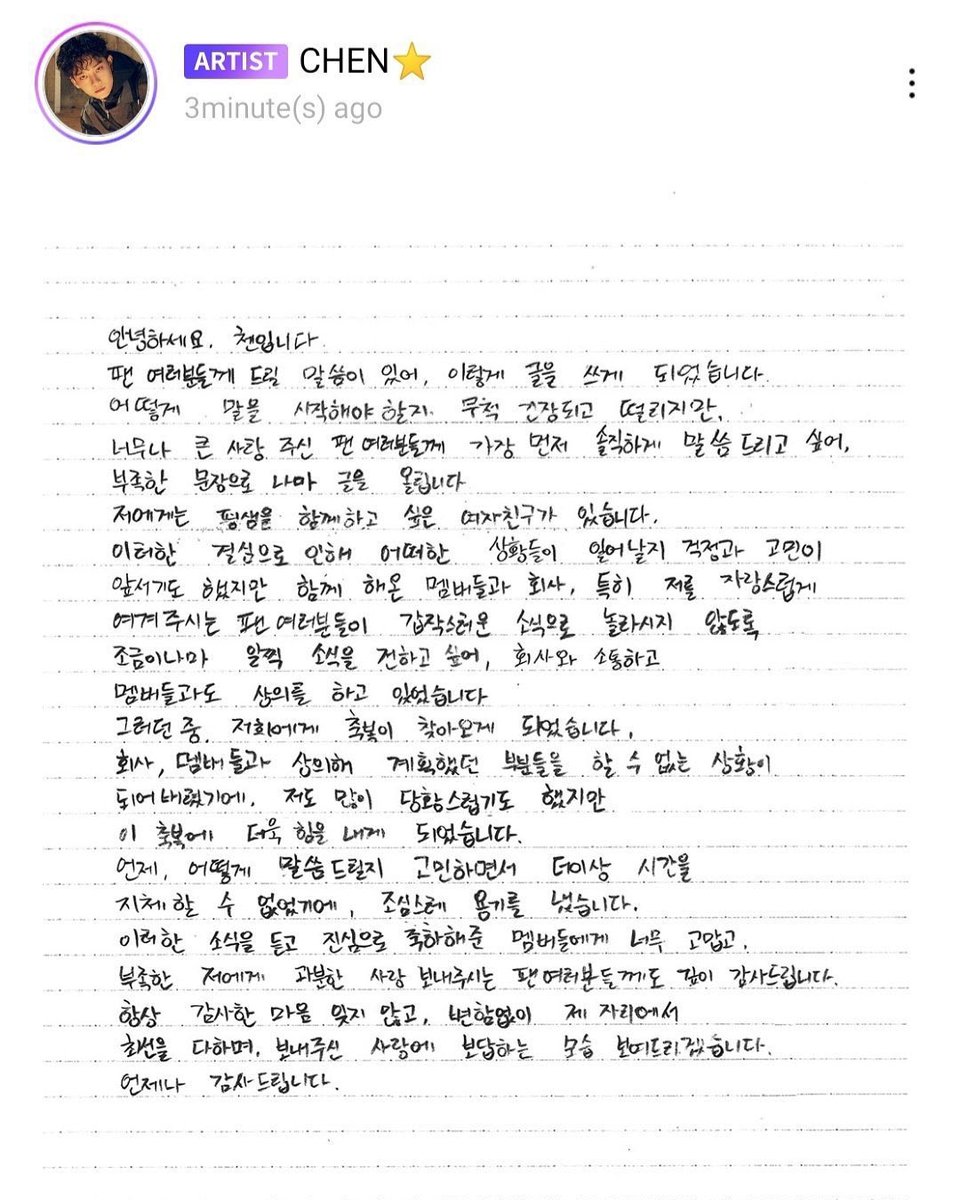 ARTIST CHEN⭐
3minute(s) ago
안녕하세요. 첸입니다.
팬 여러분들께 드릴 말씀이 있어, 이렇게 글을 쓰게 되었습니다.
어떻게 말을 시작해야 할지 무척 긴장되고 떨리지만,
너무나 큰 사랑 주신 팬 여러분들께 가장 먼저 솔직하게 말씀드리고 싶어,
부족한 문장으로나마 글을 올립니다
저에게는 평생을 함께하고 싶은 여자친구가 있습니다.
이러한 결심으로 인해 어떠한 상황들이 일어날지 걱정과 고민이
앞서기도 했지만 함께 해온 멤버들과 회사, 특히 저를 자랑스럽게
여겨주시는 팬 여러분들이 갑작스러운 소식으로 놀라시지 않도록
조금이나마 일찍 소식을 전하고 싶어, 회사와 소통하고
멤버들과도 상의를 하고 있었습니다
그러던 중, 저희에게 축복이 찾아오게 되었습니다.
회사, 멤버들과 상의해 계획했던 부분들을 할 수 없는 상황이
되어버렸기에, 저도 많이 당황스럽기도 했지만
이 축복에 더욱 힘을 내게 되었습니다.
언제, 어떻게 말씀드릴지 고민하면서 더이상 시간을
지체할 수 없었기에, 조심스레 용기를 냈습니다.
이러한 소식을 듣고 진심으로 축하해준 멤버들에게 너무 고맙고,
부족한 저에게 과분한 사랑 보내주시는 팬 여러분들께도 깊이 감사드립니다.
항상 감사한 마음 잊지 않고, 변함없이 제 자리에서
최선을 다하며, 보내주신 사랑에 보답하는 모습 보여드리겠습니다.
언제나 감사드립니다.